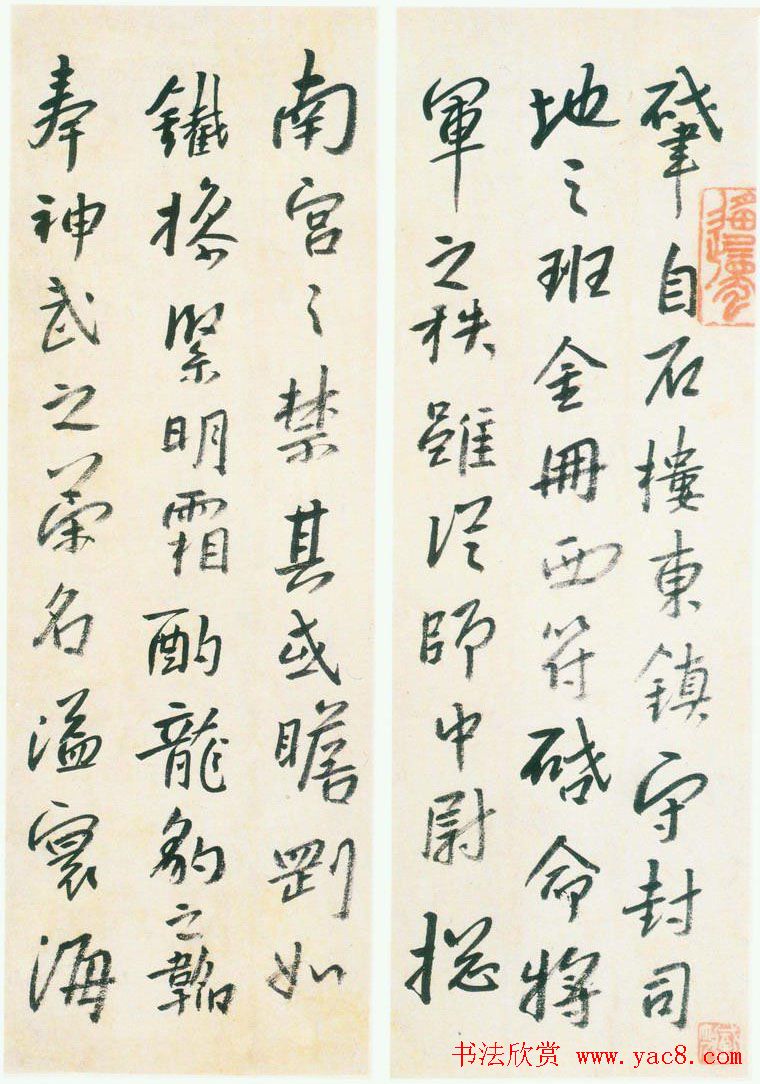 肇自石樓東鎮守封司
地之班金冊西符啓命將
軍之秩雖從師中尉摠
南宮之禁其或瞻罰如
鐵㨾緊明霜酌龍豹之韜
奉神武之榮名溢寰海
书法欣赏 www.yac8.com